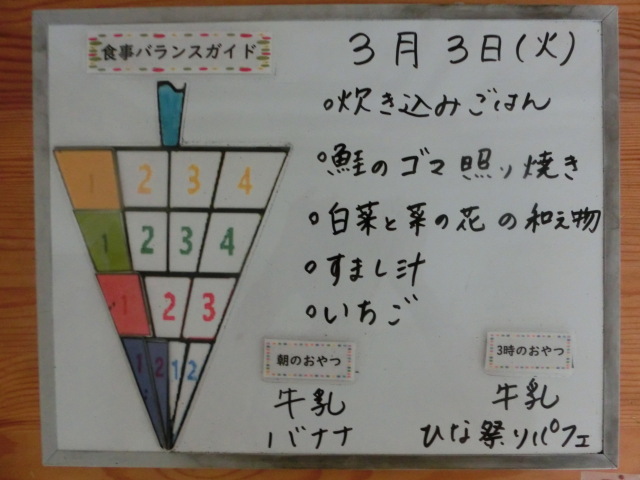 食事バランスガイド
3月3日(火)
○炊き込みごはん
○鮭のゴマ照り焼き
○白菜と菜の花の和え物
○すまし汁
○いちご
1 2 3 4
1 2 3 4
1 2 3
1 2 1 2
朝のおやつ
牛乳
バナナ
3時のおやつ
牛乳
ひな祭りパフェ